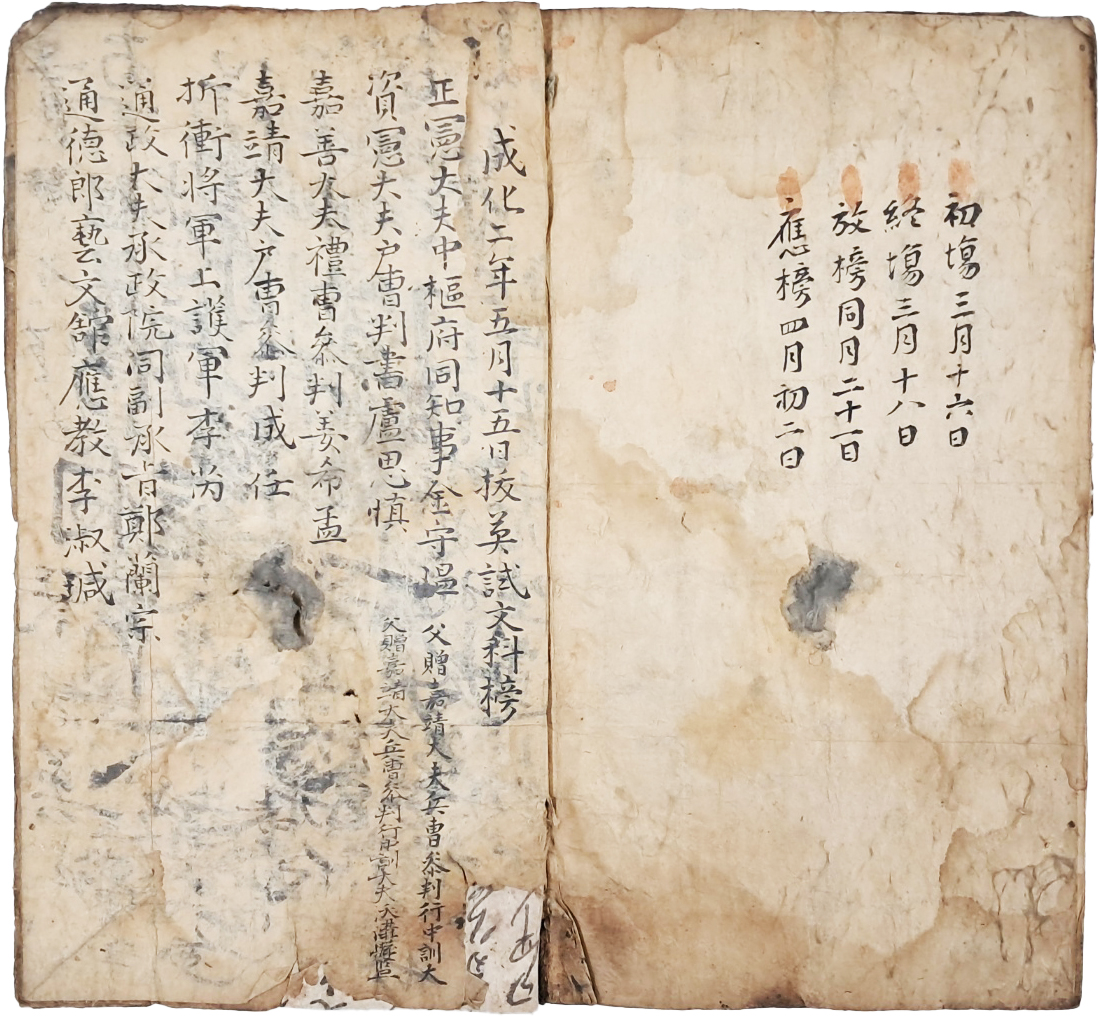 初場三月十六日
終場三月十八日
放榜同月二十一日
應榜四月初二日
成化二年五月十五日拔英試文科榜
正憲大夫中樞府同知事金守溫 父贈嘉靖大夫兵曹叅判行中訓大
資憲大夫戶曹判書盧思愼 父贈嘉靖大夫兵曹叅判行中訓大夫
嘉善大夫禮曹叅判姜希孟
嘉靖大夫戶曹叅判成任
折衝將軍上護軍李芮
通政大夫承政院同副承旨鄭蘭宗
通德郎藝文館應教李淑瑊